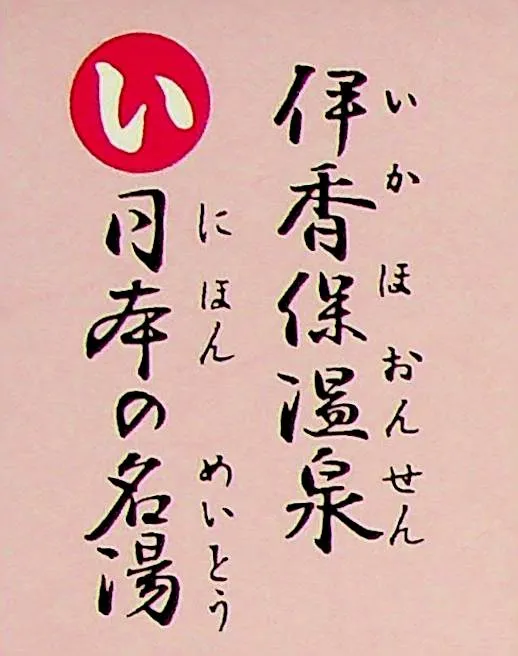 伊香保温泉
いかほおんせん
い
日本の名湯
にほん めいとう